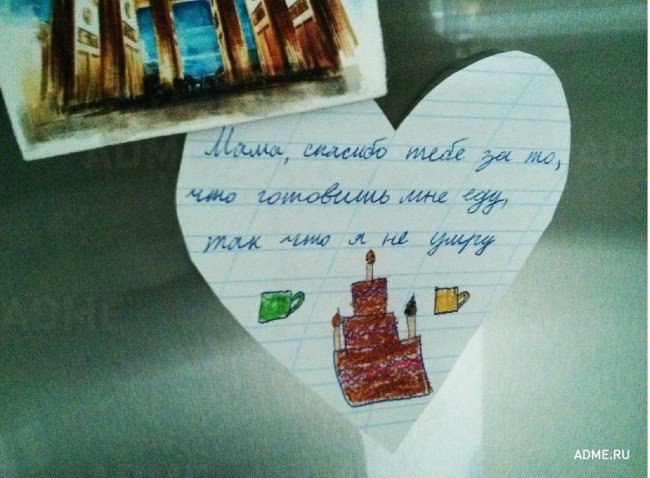 Мама, спасибо тебе за то,
что готовишь мне еду,
так что я не умру
ADME.RU